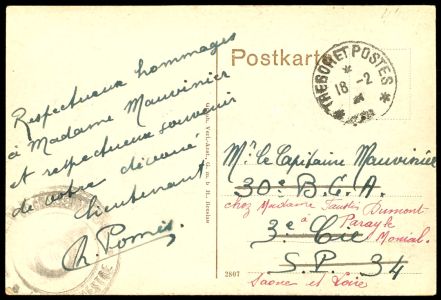 Postkarte
TRESOR ET POSTES
18-2
Respectueux hommages
à Madame Mauvinier
et respectueux souvenir
de votre dévoué
Lieutenant
Mr. le Capitaine Mauvinier
30e B.C.A.
chez Madame Dumont
3e Cie
à Paray le Monial.
S.P. 34
Saone et Loire
2807